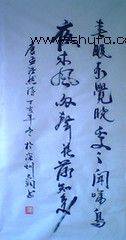 www.shufa
春眠不覺曉處々聞啼鳥
夜来風雨聲花落知多少
唐孟浩然詩丁亥年冬於深圳